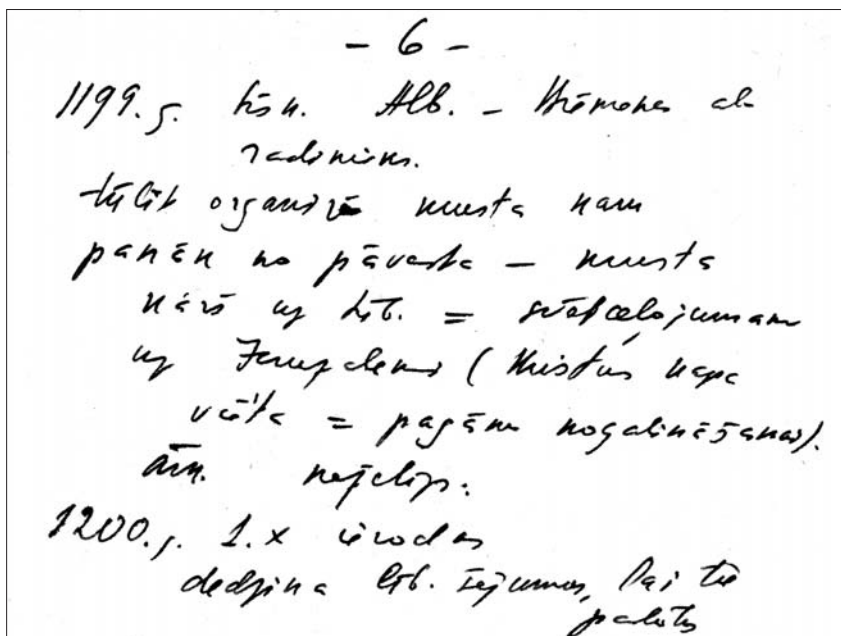 - 6 -
1199. g. bīsk. Alb. - Brēmenes
radinieks.
tūlīt organizē krusta kam
panāk no pāvesta - krusta
karš uz Līb. = svētceļojumam
uz Jeruzalemi (Kristus kapa
vieta = pagānu nogalināšanai).
1200. g. 1. x ierodas
dedzina līb. sējumus, lai tie
padotos